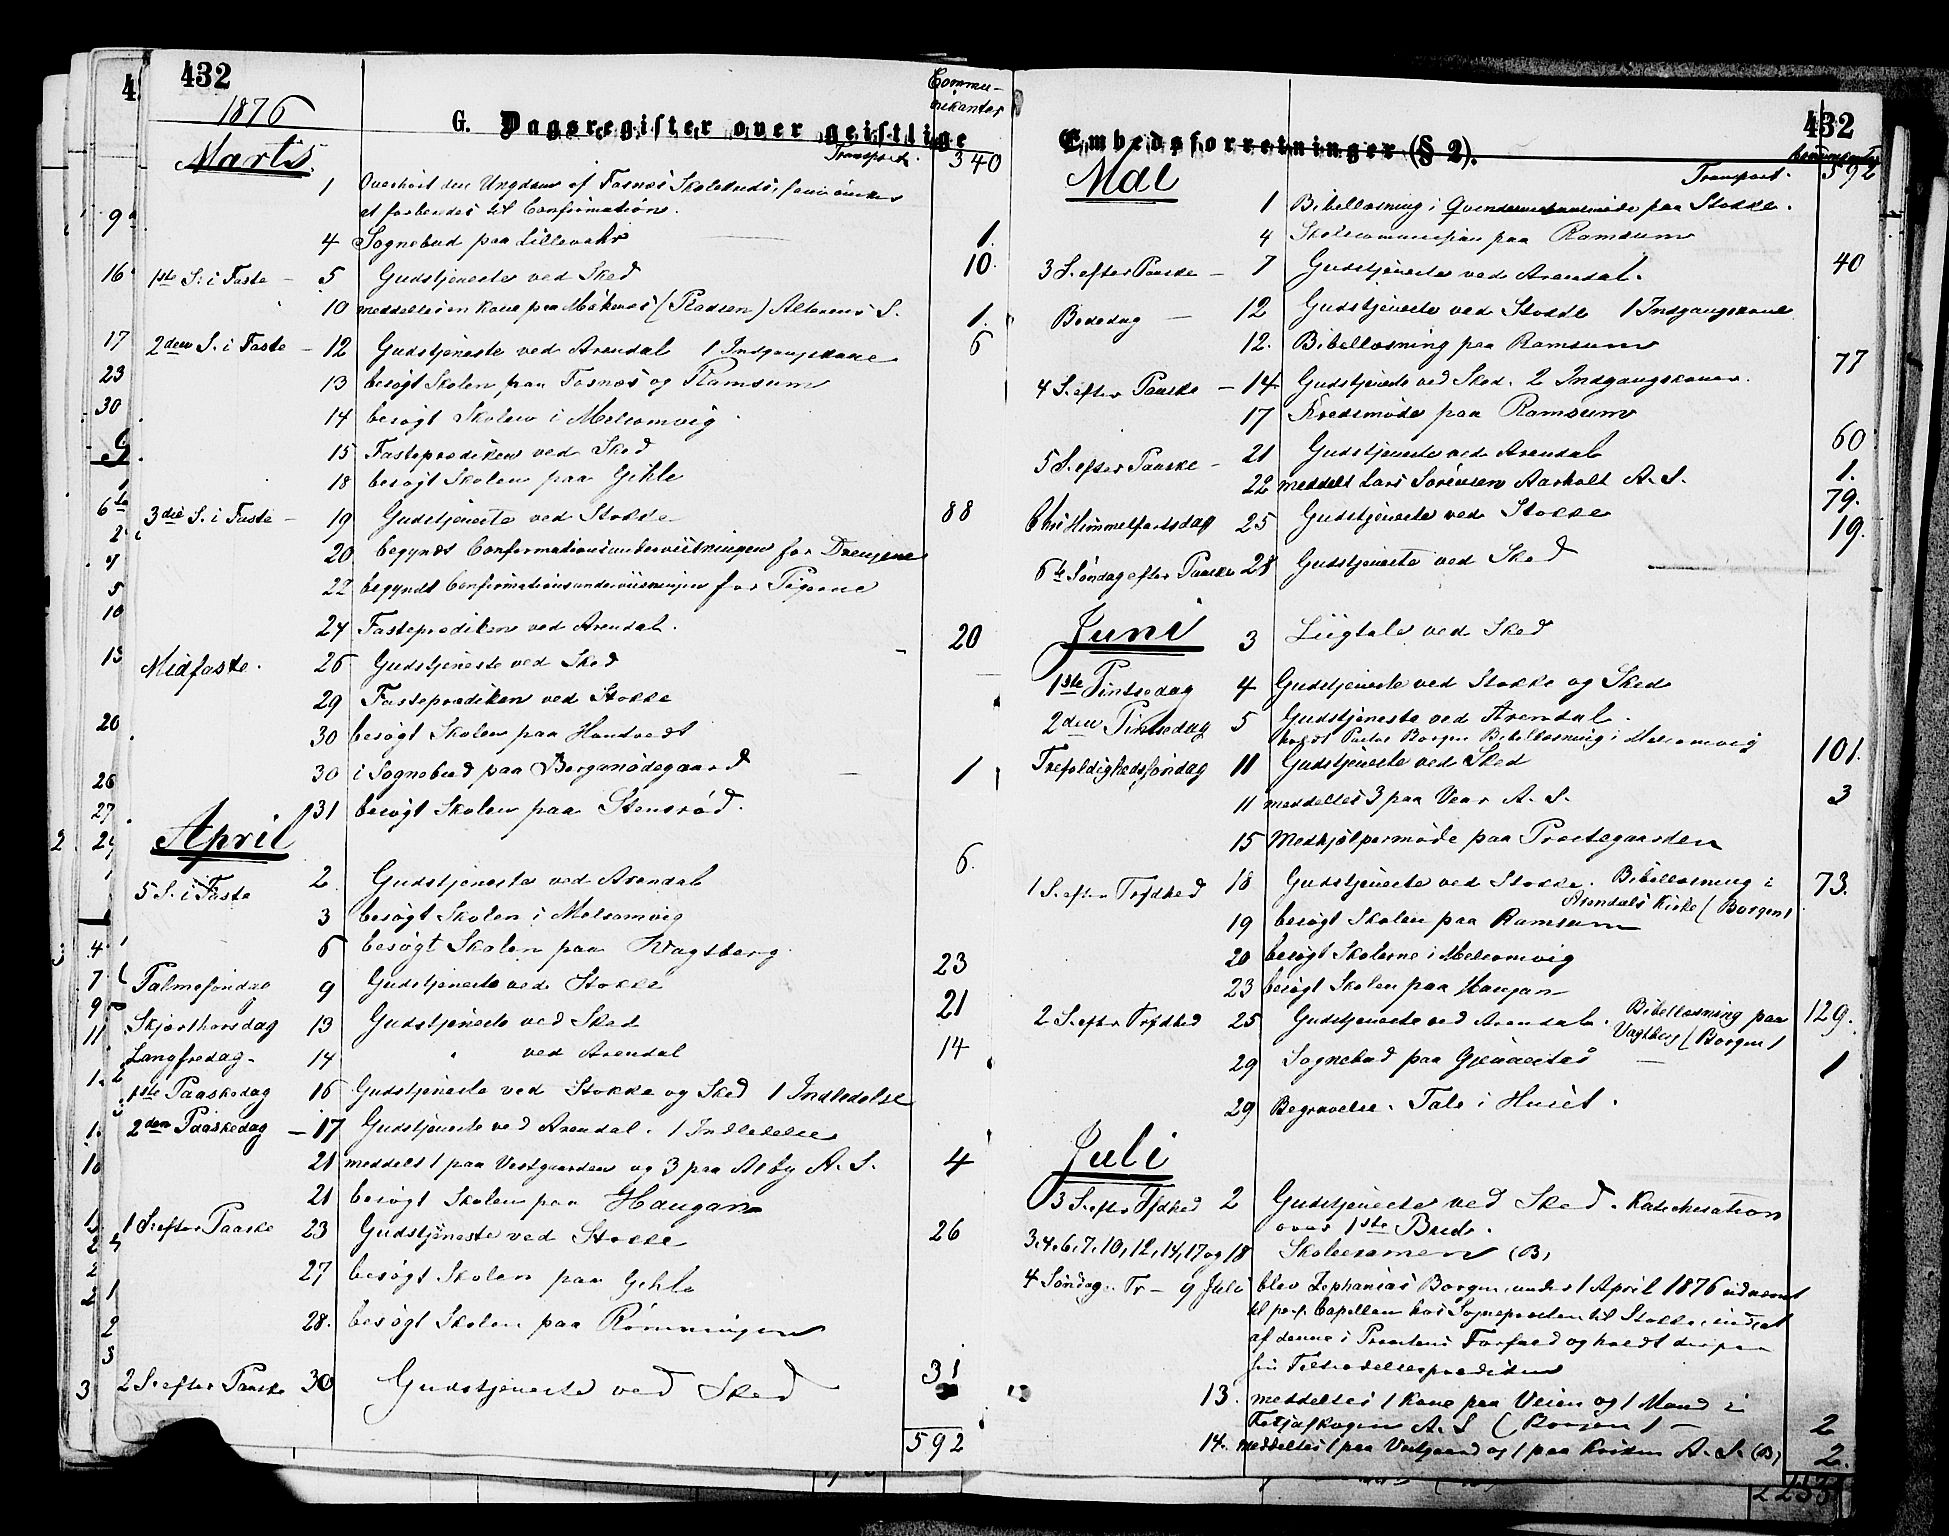 432
1876
Commu-
nikanter
G. Dagsregister over geistlige
Transport. 340
Marts.
1 Overhørt den Ungdom af Fosnæs Skolekreds, som ønskes
at forberedes til Confirmation.
4 Sognebud paa Lillevahr 1.
1ste S. i Faste - 5 Gudstjeneste ved Sked 10.
10 meddeltes en Kone paa (Pladsen) Alterens S. 1.
2den S. i Faste - 12 Gudstjeneste ved Arendal 1 Indgangskone 6
13 besøgt Skolen paa Fosnæs og Ramsum
14 besøgt Skolen i Melsomvig
15 Fasteprædiken ved Sked
18 besøgt Skolen paa Gihle
3die S. i Faste - 19 Gudstjeneste ved Stokke 88
20 begyndt Confirmationsunderviisningen for Drengene
22 begyndt Confirmationsunderviisningen for Pigerne
24 Fasteprædiken ved Arendal.
Midfaste. 26 Gudstjeneste ved Sked 20
29 Fasteprædiken ved Stokke
30 besøgt Skolen paa Hundvedt
30 i Sognebud paa Borganødegaard 1
31 besøgt Skolen paa Stensrød.
April
5 S. i Faste 2 Gudstjeneste ved Arendal 6.
3 besøgt Skolen i Melsomvig
6 besøgt Skolen paa Vagtberg
Palmesøndag 9 Gudstjeneste ved Stokke 23
Skjærthorsdag 13 Gudstjeneste ved Sked 21
Langfredag - 14 " ved Arendal 14
1ste Paaskedag 16 Gudstjeneste ved Stokke og Sked 1 Indledelse
2den Paaskedag - 17 Gudstjeneste ved Arendal. 1 Indledelse
21 meddelt 1 paa Vestgaarden og 3 paa Alby A. S. 4
21 besøgt Skolen paa Haugan
1 S. efter Paaske 23 Gudstjeneste ved Stokke 26
27 besøgt Skolen paa Gihle
28. besøgt Skolen paa Rømmingen
2 S. efter Paaske 30 Gudstjeneste ved Sked 31
592
432
Embedsforretninger (§ 2).
Communikanter
Transport. 592
Mai
1 Bibellæsning i paa Stokke.
4 Skolecommission paa Ramsum
3 S. efter Paaske - 7 Gudstjeneste ved Arendal. 40
Bededag - 12 Gudstjeneste ved Stokke 1 Indgangskone
12. Bibellæsning paa Ramsum
4 S. efter Paaske - 14 Gudstjeneste ved Sked. 2 Indgangskoner. 77
17 Kredsmøde paa Ramsum
5 S. efter Paaske - 21 Gudstjeneste ved Arendal 60
22 meddelt Lars Sørensen Aarholt A. S. 1.
Chri Himmelfartsdag 25 Gudstjeneste ved Stokke 79.
6te Søndag efter Paaske 28 Gudstjeneste ved Sked 19.
Juni 3 Liigtale ved Sked
1ste Pintsedag 4 Gudstjeneste ved Stokke og Sked
2den Pintsedag 5 Gudstjeneste ved Arendal.
holdt Pastor Borgen Bibellæsning i Melsomvig
Trefoldighedssøndag 11 Gudstjeneste ved Sked 101.
11 meddeltes 3 paa Vear A. S. 3
15 Medhjælpermøde paa Præstegaarden
1 S. efter Trfdhed 18 Gudstjeneste ved Stokke. Bibellæsning i 73.
Arendals Kirke (Borgen)
19 besøgt Skolen paa Ramsum
20 besøgt Skolerne i Melsomvig
23 besøgt Skolen paa Haugan
2 S. efter Trfdhed 25 Gudstjeneste ved Arendal. Bibellæsning paa 129.
Vagtberg (Borgen)
29 Sognebud paa 1
29 Begravelse. Tale i Huset.
Juli
3 S. efter Trfdhed 2 Gudstjeneste ved Sked. Katechesation
over 1ste Bud.
3, 4, 6, 7, 10, 12, 14, 17 og 18 Skoleexamen (B)
4 Søndag e. Tr - 9 Juli blev Zephanias Borgen, under 1 April 1876 udnævnt
til pers. Capellan hos Sognepræsten til Stokke, indsat
af denne i Provstens Forfald og holdt derpaa
sin Tiltrædelsesprædiken
13. meddeltes 1 Kone paa Veien og 1 Mand i
A. S. (Borgen) 2
14. meddeltes 1 paa Vestgaard og 1 paa A. S. (B) 2.